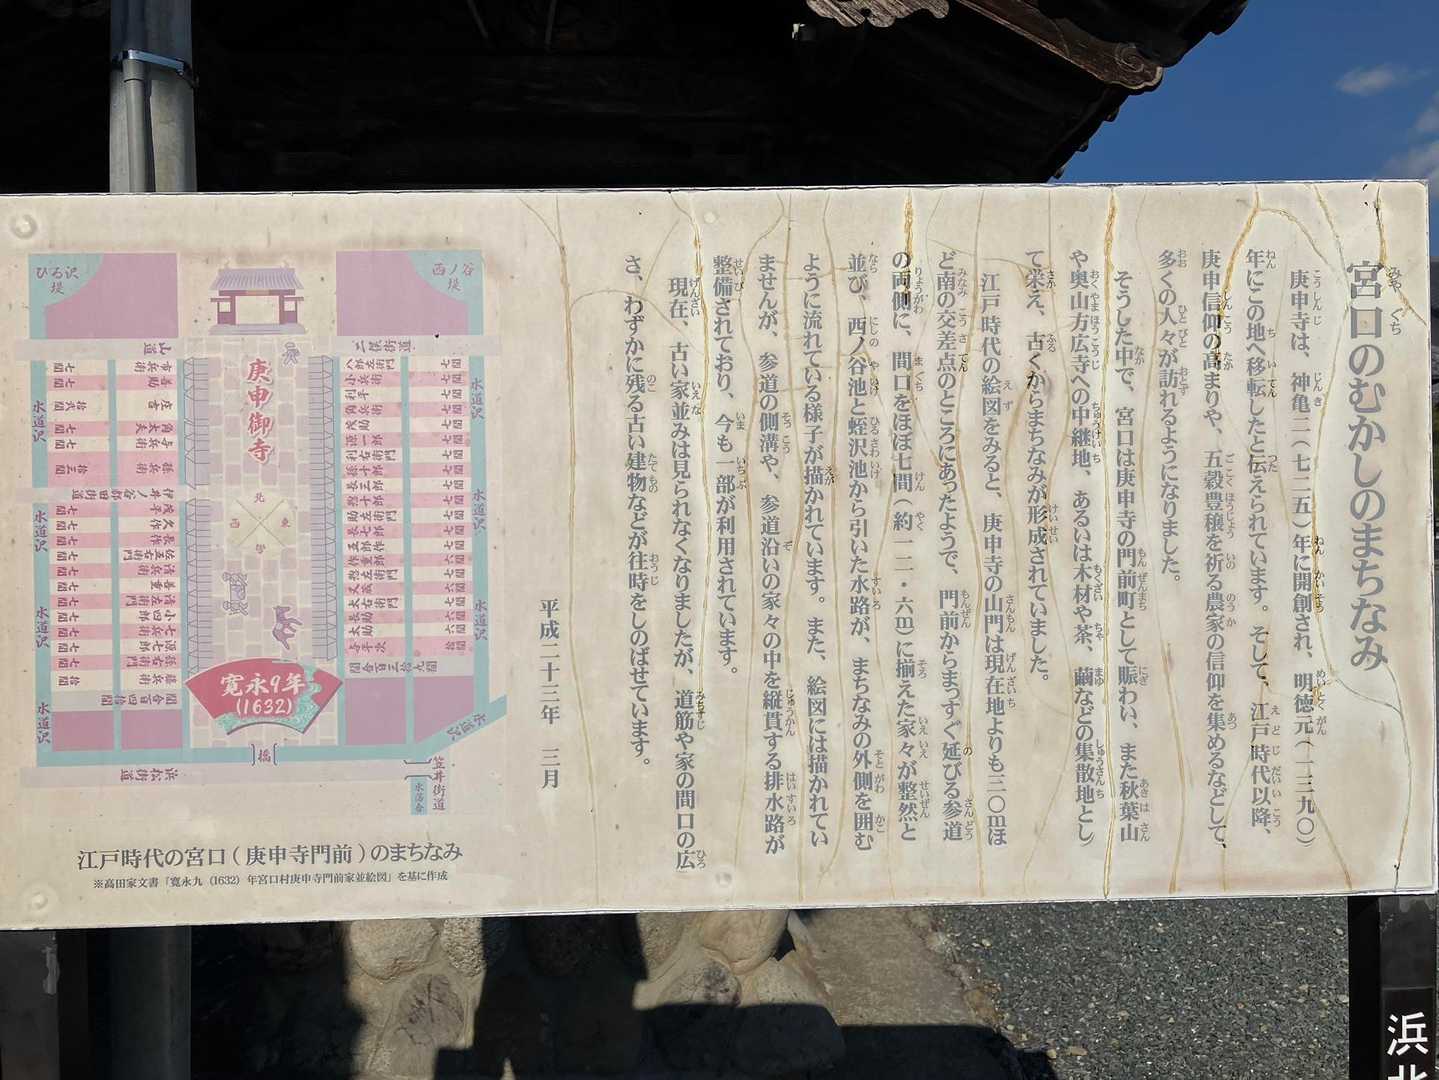 宮口のむかしのまちなみ
庚申寺は、神亀二(七二五)年に開創され、明徳元(一三九〇)
年にこの地へ移転したと伝えられています。そして、江戸時代以降、
庚申信仰の高まりや、五穀豊穣を祈る農家の信仰を集めるなどして、
多くの人々が訪れるようになりました。
そうした中で、宮口は庚申寺の門前町として賑わい、また秋葉山
や奥山方広寺への中継地、あるいは木材や茶、繭などの集散地とし
て栄え、古くからまちなみが形成されていました。
江戸時代の絵図をみると、庚申寺の山門は現在地よりも三〇mほ
ど南の交差点のところにあったようで、門前からまっすぐ延びる参道
の両側に、間口をほぼ七間(約一二・六m)に揃えた家々が整然と
並び、西ノ谷池と蛭沢池から引いた水路が、まちなみの外側を囲む
ように流れている様子が描かれています。また、絵図には描かれてい
ませんが、参道の側溝や、参道沿いの家々の中を縦貫する排水路が
整備されており、今も一部が利用されています。
現在、古い家並みは見られなくなりましたが、道筋や家の間口の広
さ、わずかに残る古い建物などが往時をしのばせています。
平成二十三年 三月
ひる沢堤
西ノ谷堤
二俣街道
庚申御寺
水道沢
水道沢
水道沢
水道沢
水道沢
水道沢
水道沢
北
東
西
寛永9年
(1632)
橋
浜松街道
笠井街道
水落合
江戸時代の宮口(庚申寺門前)のまちなみ
※高田家文書「寛永九(1632)年宮口村庚申寺門前家並絵図」を基に作成
浜北